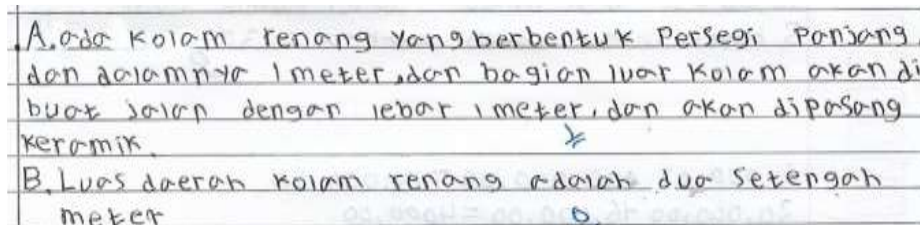 A. ada kolam renang yang berbentuk Persegi Panjang
dan dalamnya 1 meter, dan bagian luar kolam akan di
buat jalan dengan lebar 1 meter, dan akan dipasang
keramik.
B. Luas daerah kolam renang adalah dua setengah
meter